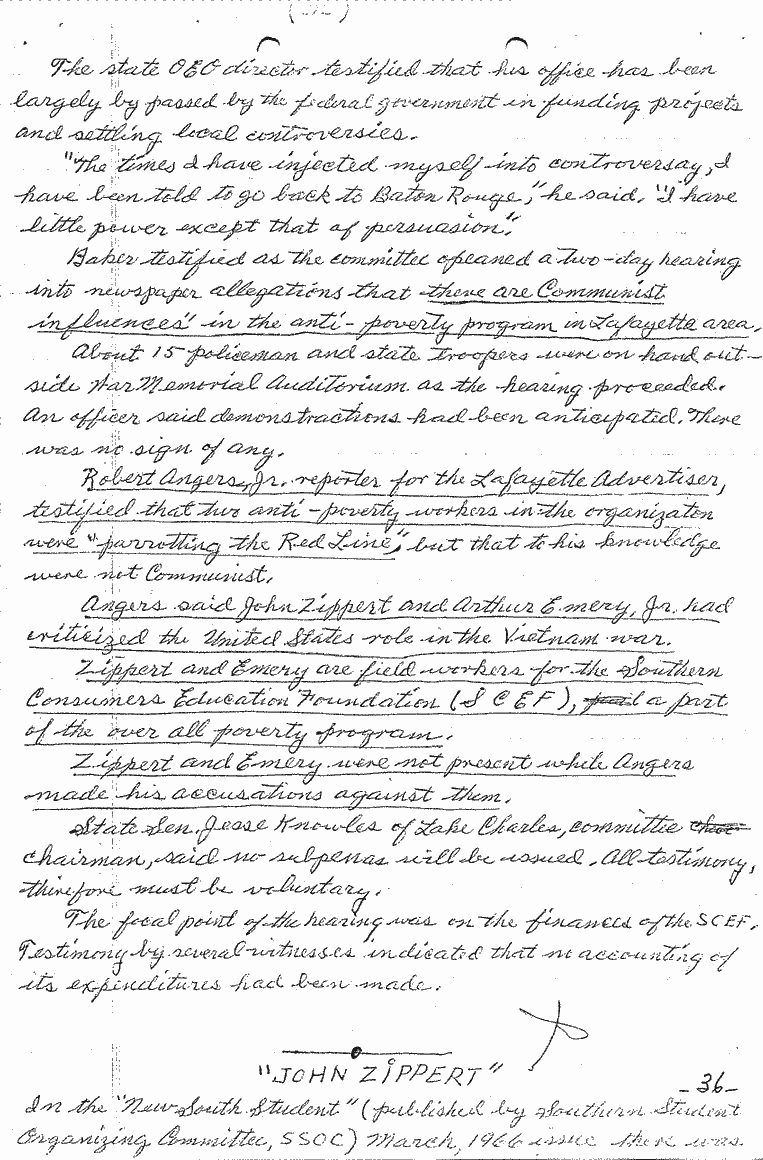 The state OEO director testified that his office has been
largely by passed by the federal government in funding projects
and settling local controversies.
"The times I have injected myself into controversay, I
have been told to go back to Baton Rouge", he said. "I have
little power except that of persuasion".
Baker testified as the committee opeaned a two-day hearing
into newspaper allegations that there are Communist
influences" in the anti-poverty program in Lafayette area.
About 15 policeman and state troopers were on hand out-
side War Memorial Auditorium as the hearing proceeded.
An officer said demonstractions had been anticipated. There
was no sign of any.
Robert Angers, Jr. reporter for the Lafayette Advertiser,
testified that two anti-poverty workers in the organizaten
were "parrotting the Red Line", but that to his knowledge
were not Communist.
Angers said John Zippert and Arthur Emery, Jr. had
criticized the United States role in the Vietnam war.
Zippert and Emery are field workers for the Southern
Consumers Education Foundation (SCEF), a part
of the over all poverty program.
Zippert and Emery were not present while Angers
made his accusations against them.
State Sen. Jesse Knowles of Lake Charles, committee
chairman, said no subpenas will be issued. All testimony,
thirefore must be voluntary.
The focal point of the hearing was on the finances of the SCEF.
Testimony by several witnesses indicated that no accounting of
its expenditures had been made.
"JOHN ZIPPERT"
-36-
In the "New South Student" (published by Southern Student
Organizing Committee, SSOC) March, 1966 issue there was